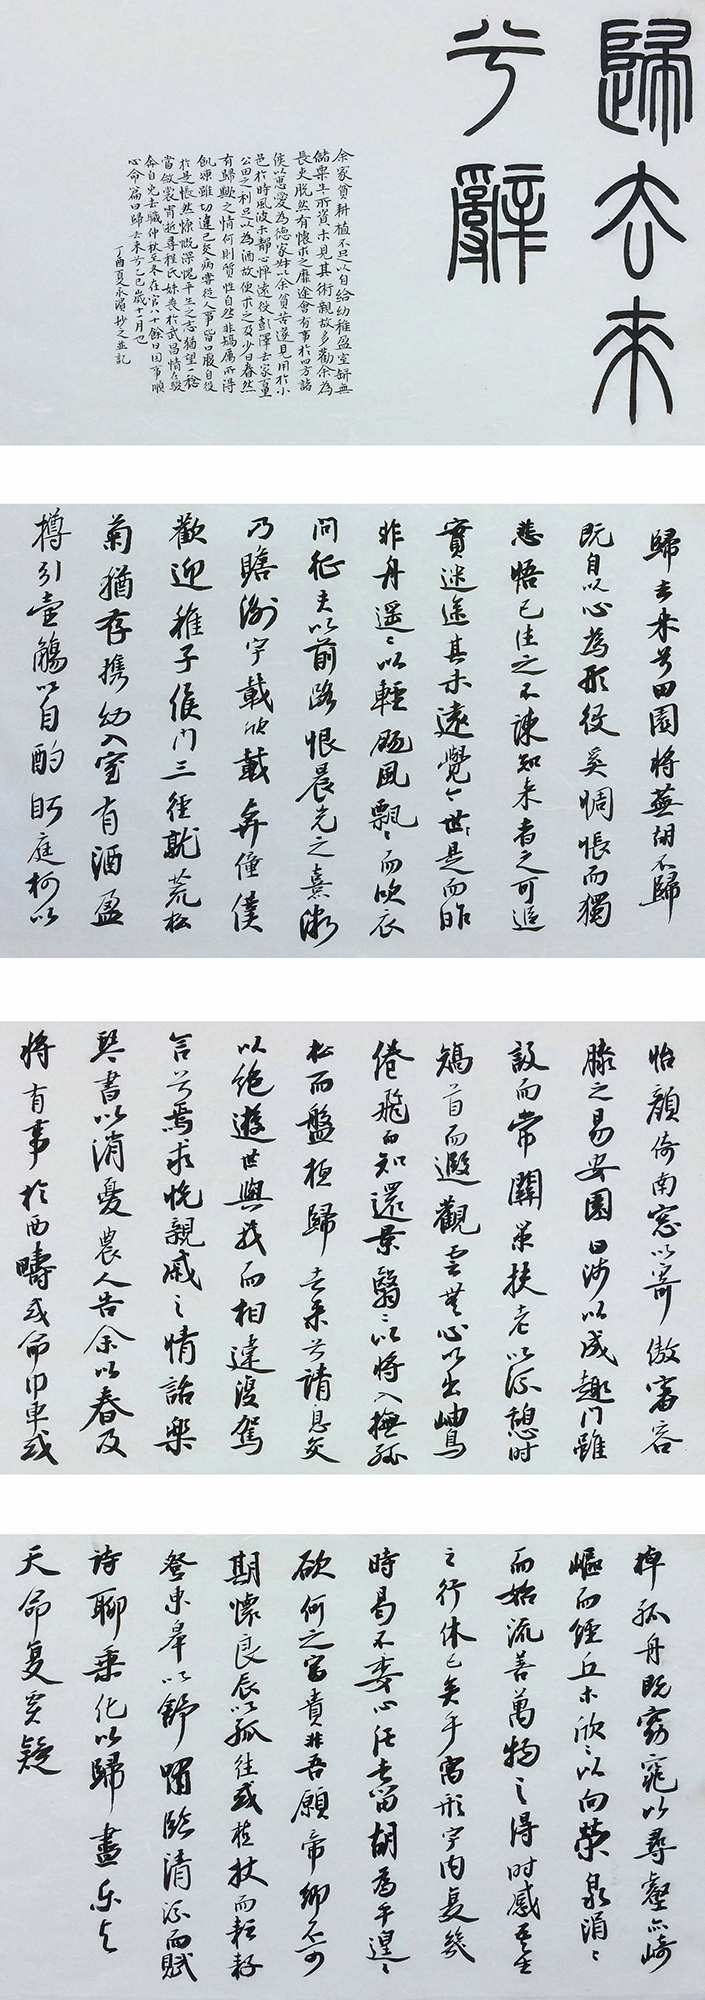 歸去來
兮辭
余家貧耕植不足以自給幼稚盈室缾無
儲粟生生所資未見其術親故多勸余為
長吏脫然有懷求之靡途會有事於四方諸
侯以惠愛為德家叔以余貧苦遂見用於小
邑於時風波未靜心憚遠役彭澤去家百里
公田之利足以為酒故便求之及少日眷然
有歸歟之情何則質性自然非矯厲所得
飢凍雖切違己交病嘗從人事皆口腹自役
於是悵然慷慨深愧平生之志猶望一稔
當斂裳宵逝尋程氏妹喪於武昌情在駿
奔自免去職仲秋至冬在官八十餘日因事順
心命篇曰歸去來兮乙巳歲十一月也
丁酉夏永濱抄之並記
歸去來兮田園將蕪胡不歸
既自以心為形役奚惆悵而獨
悲悟已往之不諫知來者之可追
實迷途其未遠覺今世是而昨
非舟遥〻以輕颺風飄〻而吹衣
問征夫以前路恨晨光之熹微
乃瞻衡宇載欣載奔僮僕
歡迎稚子候門三徑就荒松
菊猶存携幼入室有酒盈
樽引壺觴以自酌眄庭柯以
怡顏倚南窓以寄傲審容
膝之易安園日涉以成趣門雖
設而常關策扶老以流憩時
矯首而遐觀雲無心以出岫鳥
倦飛而知還景翳〻以將入撫孤
松而盤桓歸去來兮請息交
以絕遊世與我而相違復駕
言兮焉求悅親戚之情話樂
琴書以消憂農人告余以春及
將有事於西疇或命巾車或
棹孤舟既窈窕以尋壑亦崎
嶇而經丘木欣〻以向榮泉涓〻
而始流善萬物之得時感吾生
之行休已矣乎寓形宇內复幾
時曷不委心任去留胡為乎遑〻
欲何之富貴非吾願帝鄉不可
期懷良辰以孤往或植杖而耘耔
登東皋以舒嘯臨清流而賦
詩聊乘化以歸盡樂夫
天命复奚疑